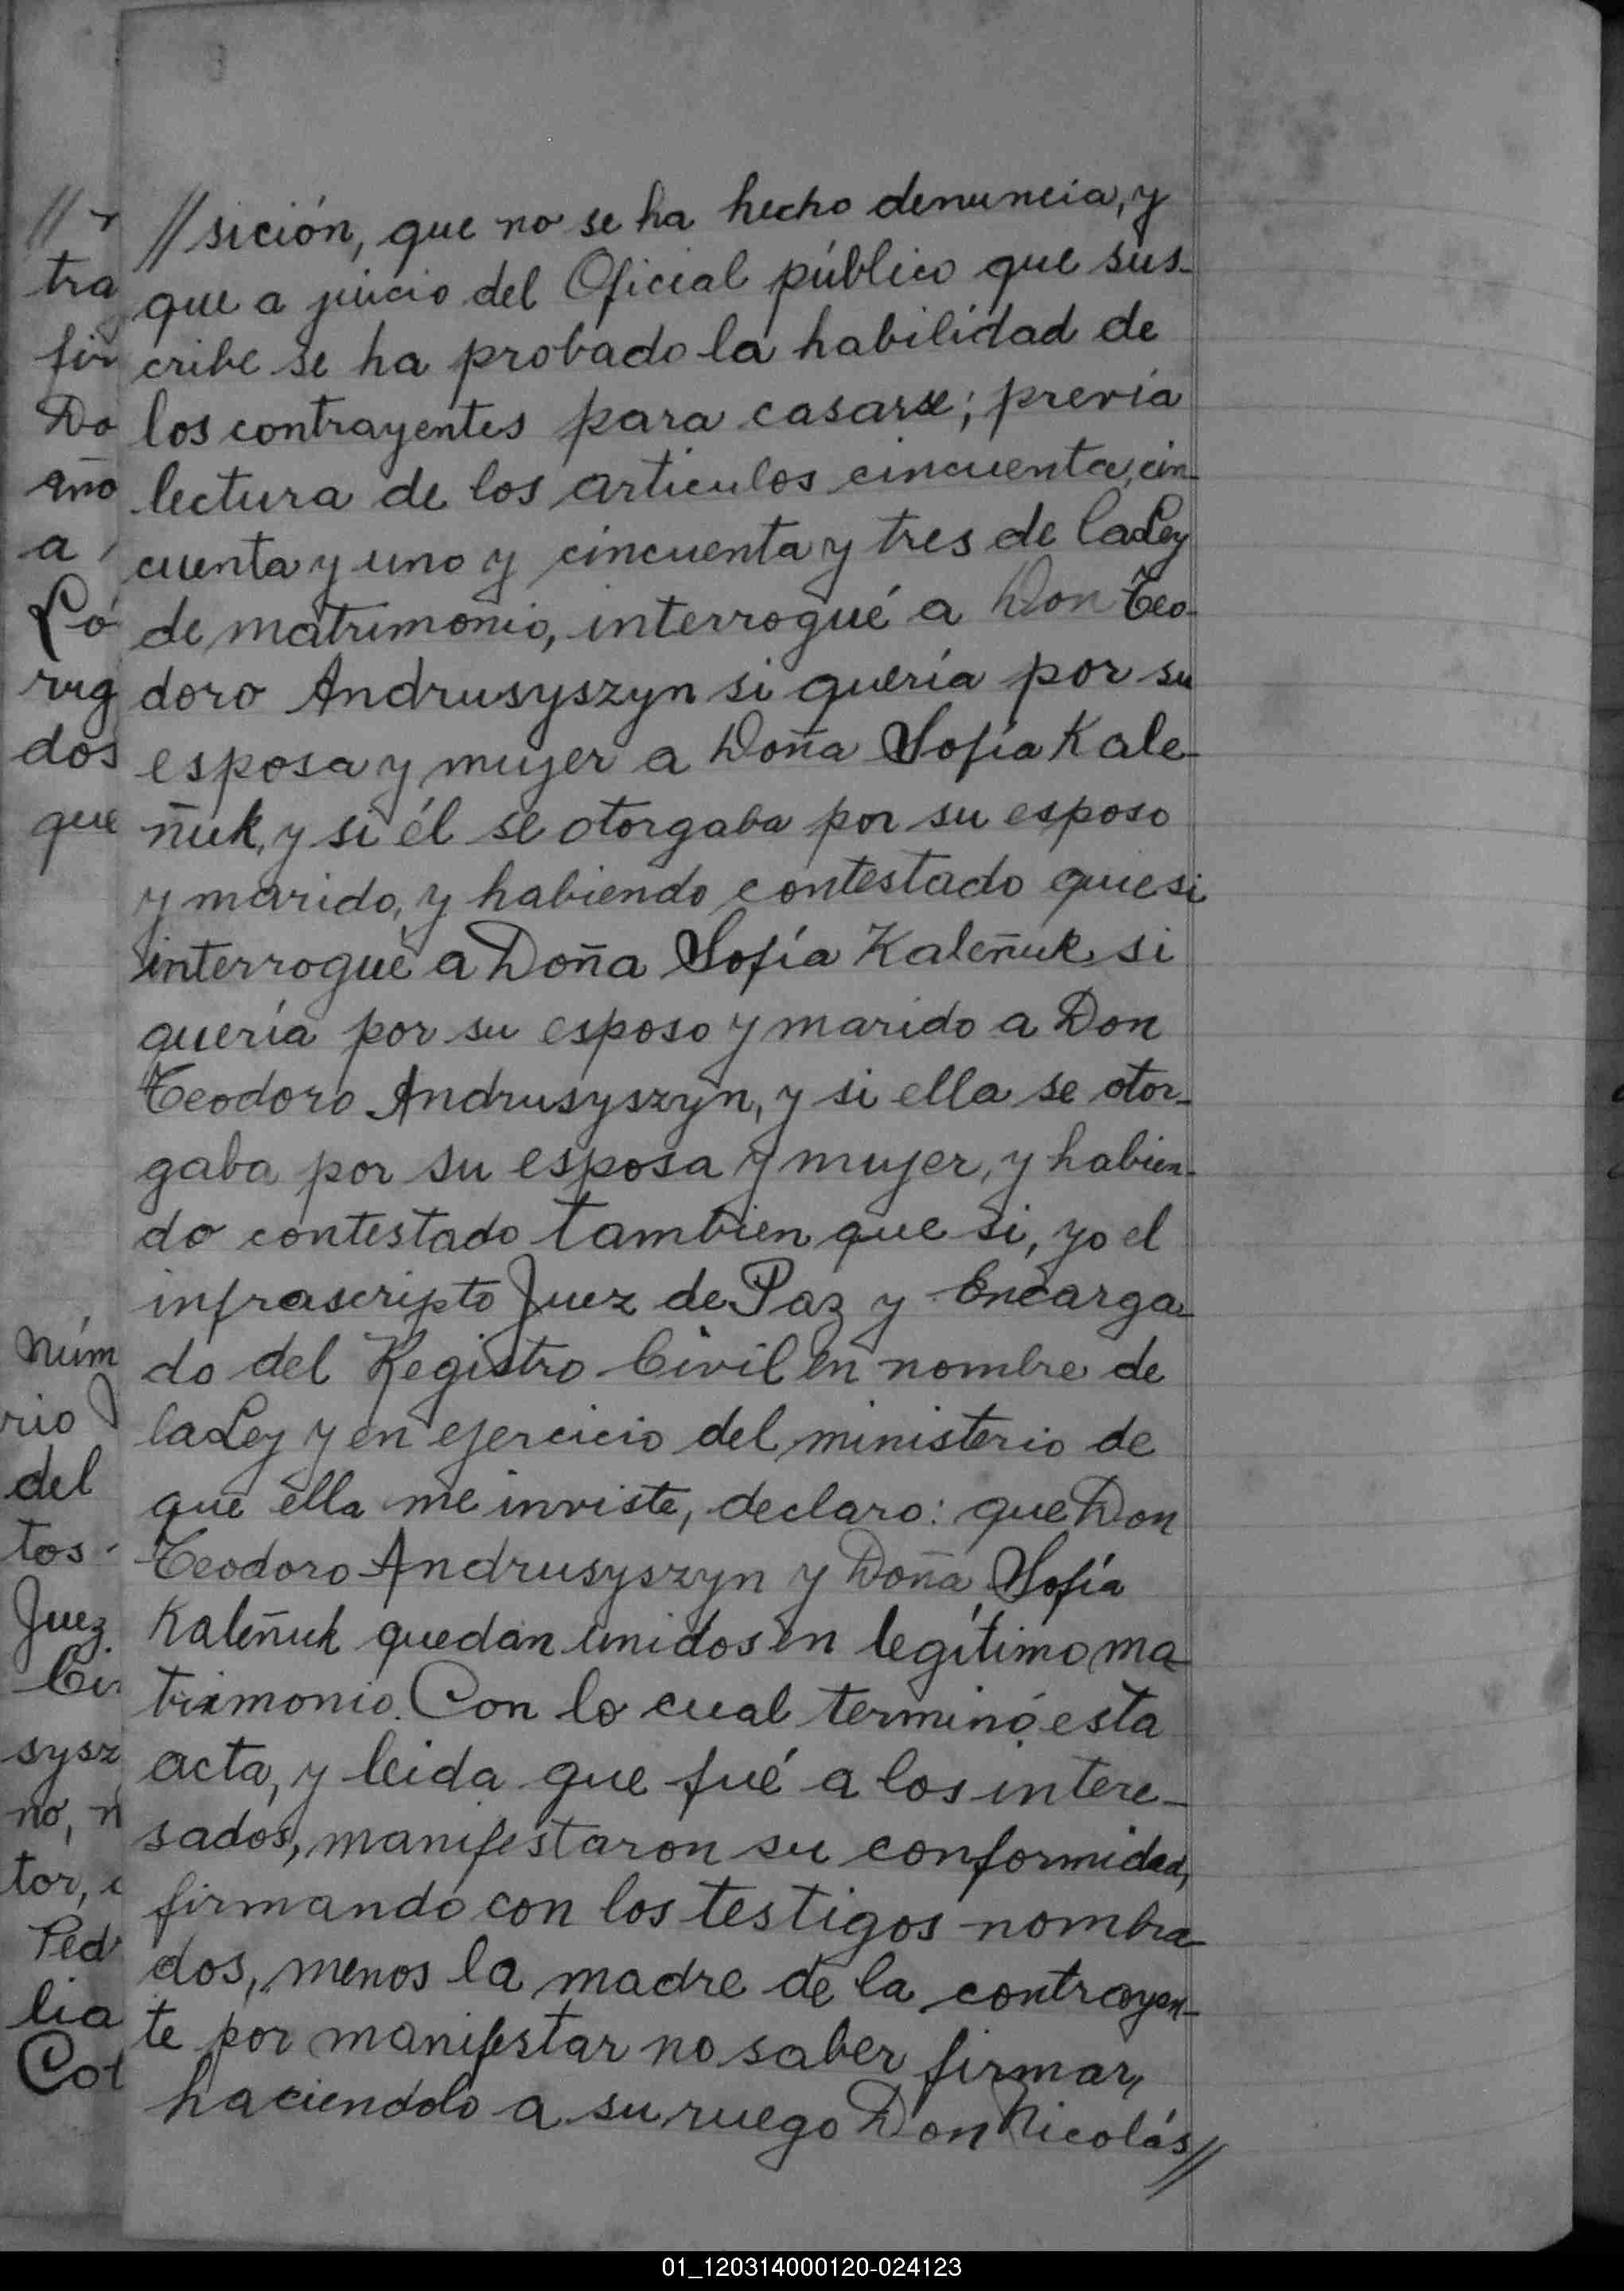 //sición, que no se ha hecho denuncia, y
que a juicio del Oficial público que sus-
cribe se ha probado la habilidad de
los contrayentes para casarse; previa
lectura de los articulos cincuenta, cin-
cuenta y uno y cincuenta y tres de la Ley
de matrimonio, interrogué a Don Teo-
doro Andrusyszyn si quería por su
esposa y mujer a Doña Sofía Kale-
ñuk, y si él se otorgaba por su esposo
y marido, y habiendo contestado que si
interrogué a Doña Sofía Kaleñuk si
quería por su esposo y marido a Don
Teodoro Andrusyszyn, y si ella se otor-
gaba por su esposa y mujer, y habien-
do contestado tambien que si, yo el
infrascripto Juez de Paz y Encarga-
do del Registro Civil en nombre de
la Ley y en ejercicio del ministerio de
que ella me inviste, declaro: que Don
Teodoro Andrusyszyn y Doña Sofía
Kaleñuk quedan unidos en legítimo ma-
trimonio. Con lo cual terminó esta
acta, y leida que fué a los intere-
sados, manifestaron su conformidad,
firmando con los testigos nombra-
dos, menos la madre de la contrayen-
te por manifestar no saber firmar,
haciendolo a su ruego Don Nicolás//
tra
fir
Do
año
a
Ló
rug
dos
que
Núm
rio
del
tos
Juez
Civ
sysz
no, n
tor,
Ped
lia
Cot
01_120314000120-024123